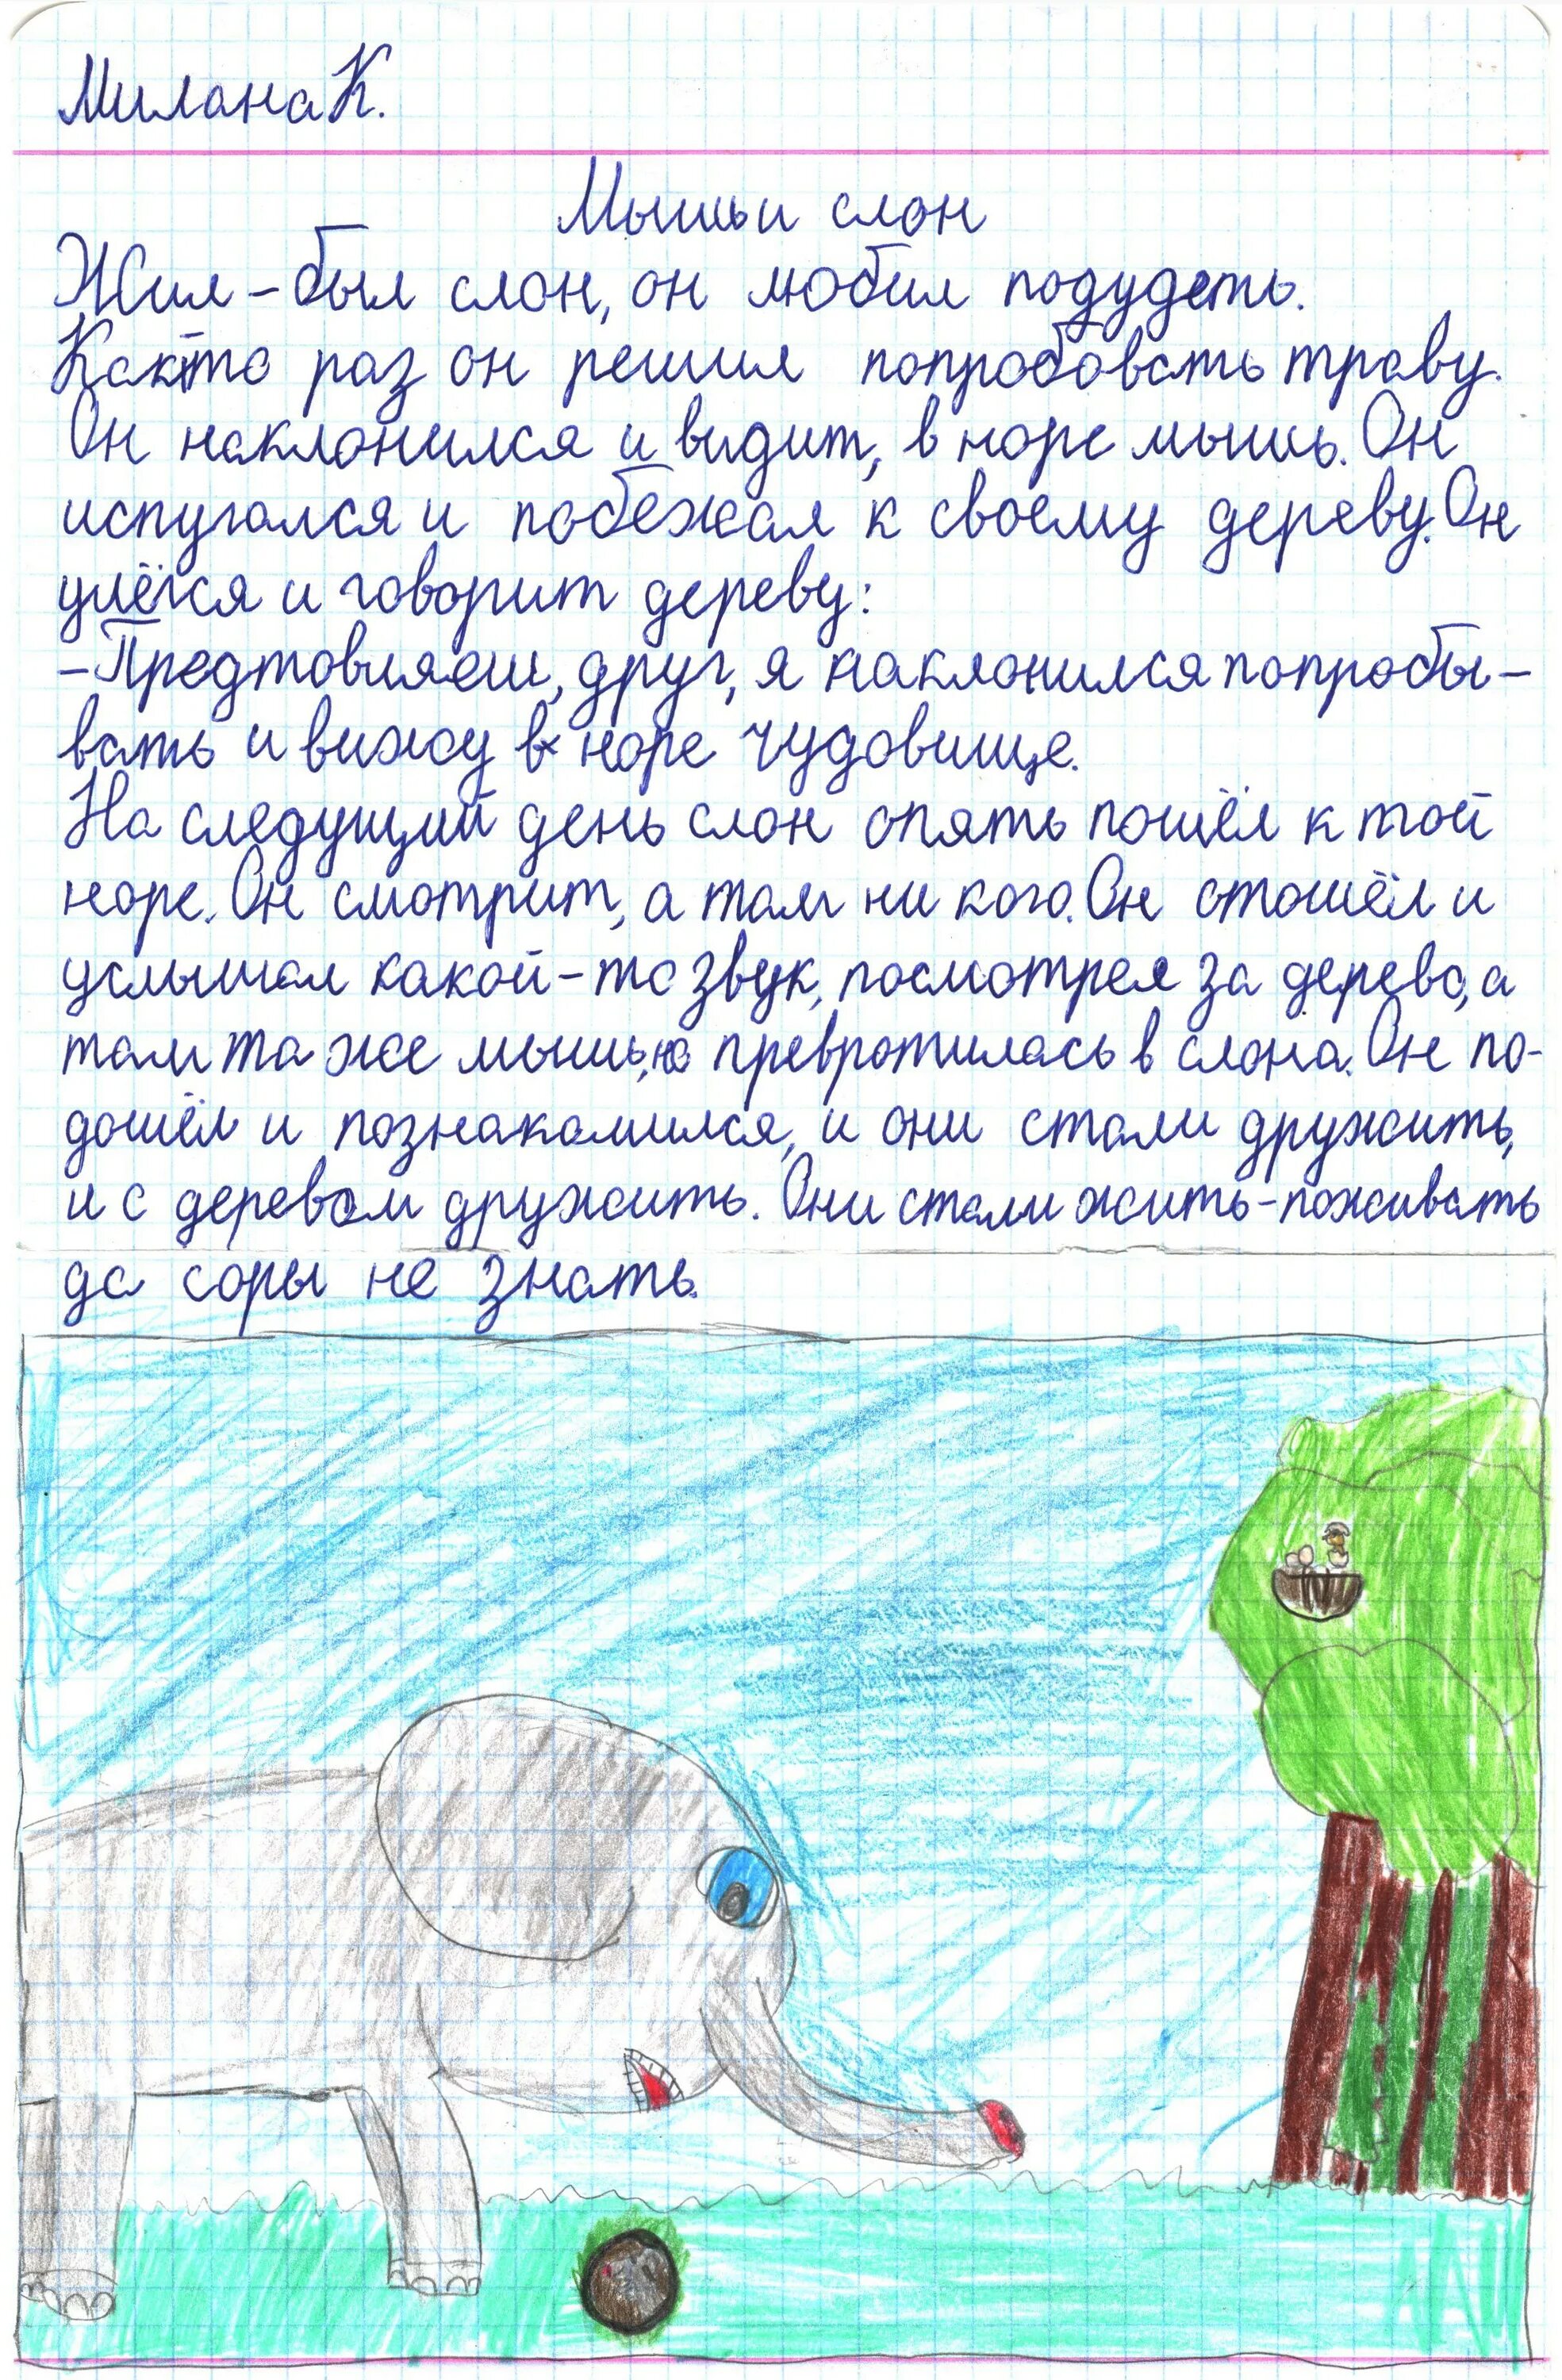 Милана К.
Мышь и слон
Жил-был слон, он любил подудеть.
Както раз он решил попробовать траву.
Он наклонился и видит, в норе мышь. Он
испугался и побежал к своему дереву. Он
улёгся и говорит дереву:
-Предтовляеш, друг, я наклонился попробы-
вать и вижу в норе чудовище.
На следущий день слон опять пошёл к той
норе. Он смотрит, а там ни кого. Он отошёл и
услышал какой-то звук, посмотрел за дерево, а
там та же мышь, но превротилась в слона. Он по-
дошёл и познакомился, и они стали дружить,
и с деревом дружить. Они стали жить-поживать
да соры не знать.